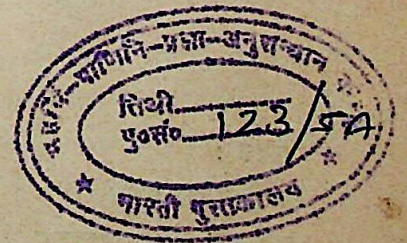 पाणिनि-प्रज्ञा-अनुसन्धान
तिथी..................
पु०सं०....123/5A
★ भारती पुस्तकालय ★